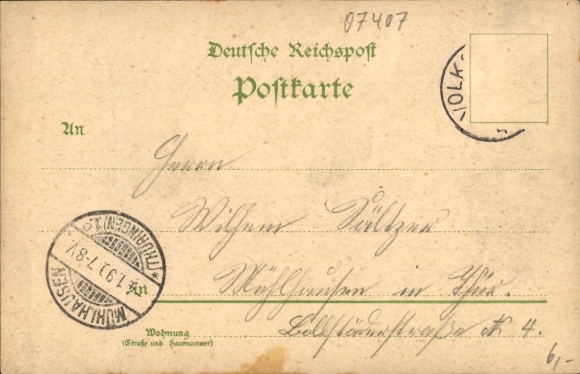 07407
Deutsche Reichspost
Postkarte
VOLK
An
Herrn
Wilhem Sältzer
MÜHLHAUSEN
(THÜRINGEN) 1.
7-8V
in Mühlhausen in Thür.
Wohnung
(Straße und Hausnummer)
№ 4.
6,-